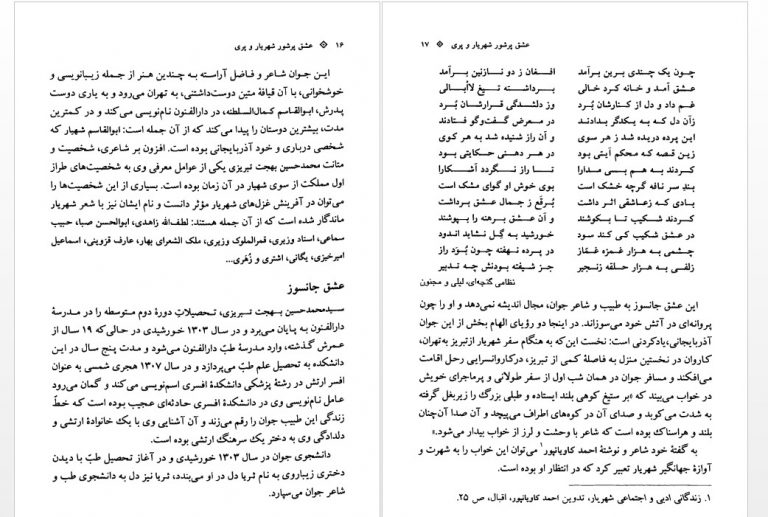 ۱۶ ❖ عشق پرشور شهریار و پری
این جوان شاعر و فاضل آراسته به چندین هنر از جمله زیبانویسی و
خوشخوانی، با آن قیافهٔ متین دوست‌داشتنی، به تهران می‌رود و به یاری دوست
پدرش، ابوالقاسم کمال‌السلطنه، در دارالفنون نام‌نویسی می‌کند و در کمترین
مدت، بیشترین دوستان را پیدا می‌کند که از آن جمله است: ابوالقاسم شهیار که
شخصی درباری و خود آذربایجانی بوده است. افزون بر شاعری، شخصیت و
متانت محمدحسین بهجت تبریزی یکی از عوامل معرفی وی به شخصیت‌های طراز
اول مملکت از سوی شهیار در آن زمان بوده است. بسیاری از این شخصیت‌ها را
می‌توان در آفرینش غزل‌های شهریار مؤثر دانست و نام ایشان نیز با شعر شهریار
ماندگار شده است که از آن جمله هستند: لطف‌الله زاهدی، ابوالحسن صبا، حبیب
سماعی، استاد وزیری، قمرالملوک وزیری، ملک الشعرای بهار، عارف قزوینی، اسماعیل
امیرخیزی، یگانی، اشتری و زُهَری...
عشق جانسوز
سیدمحمدحسین بهجت تبریزی، تحصیلات دورهٔ دوم متوسطه را در مدرسهٔ
دارالفنون به پایان می‌برد و در سال ۱۳۰۳ خورشیدی در حالی‌که ۱۹ سال از
عمرش گذشته، وارد مدرسهٔ طبّ دارالفنون می‌شود و مدت پنج سال در این
دانشکده به تحصیل علم طبّ می‌پردازد و در سال ۱۳۰۷ هجری شمسی به عنوان
افسر ارتش در رشتهٔ پزشکی دانشکدهٔ افسری اسم‌نویسی می‌کند و گمان می‌رود
عامل نام‌نویسی وی در دانشکدهٔ افسری حادثه‌ای عجیب بوده است که خطّ
زندگی این طبیب جوان را رقم می‌زند و آن آشنایی وی با یک خانوادهٔ ارتشی و
دلدادگی وی به دختر یک سرهنگ ارتشی بوده است.
دانشجوی جوان در سال ۱۳۰۳ خورشیدی و در آغاز تحصیل طبّ با دیدن
دختری زیباروی به نام ثریا دل در او می‌بندد، ثریا نیز دل به دانشجوی طب و
شاعر جوان می‌سپارد.
عشق پرشور شهریار و پری ❖ ۱۷
چون یک چندی برین برآمد افـغـان ز دو نازنین برآمد
عشق آمد و خانه کرد خالی برداشته تیغ لاأبالی
غم داد و دل از کنارشان بُرد وز دلشدگی قرارشان بُرد
زآن دل که به یکدگر بدادند در معرض گفت‌وگو فتادند
این پرده دریده شد ز هر سوی و آن راز شنیده شد به هر کوی
زین قصه که محکم آیتی بود در هر دهنی حکایتی بود
کردند به هم بسی مدارا تا راز نگردد آشکارا
بندِ سر نافه گرچه خشک است بوی خوش او گوای مشک است
بادی که ز عاشقی اثر داشت بُرقَع ز جمال عشق برداشت
کردند شکیب تا بکوشند و آن عشق برهنه را بپوشند
در عشق شکیب کی کند سود خورشید به گِل نشاید اندود
چشمی به هزار غمزه غمّاز در پرده نهفته چون بُوَد راز
زلفی به هزار حلقه زنجیر جز شیفته بودنش چه تدبیر
نظامی گنجه‌ای، لیلی و مجنون
این عشق جانسوز به طبیب و شاعر جوان، مجال اندیشه نمی‌دهد و او را چون
پروانه‌ای در آتش خود می‌سوزاند. در اینجا دو رؤیای الهام بخش از این جوان
آذربایجانی،یادکردنی است: نخست این‌که به هنگام سفر شهریار ازتبریز به‌تهران،
کاروان در نخستین منزل به فاصلهٔ کمی از تبریز، درکاروانسرایی رحل اقامت
می‌افکند و مسافر جوان در همان شب اول از سفر طولانی و پرماجرای خویش
در خواب می‌بیند که «بر ستیغ کوهی بلند ایستاده و طبلی بزرگ را زیربغل گرفته
به شدت می‌کوبد و صدای آن در کوه‌های اطراف می‌پیچد و آن صدا آن‌چنان
بلند و هراسناک بوده است که شاعر با وحشت و لرز از خواب بیدار می‌شود.»
به گفتهٔ خود شاعر و نوشتهٔ احمد کاویانپور۱ می‌توان این خواب را به شهرت و
آوازهٔ جهانگیر شهریار تعبیر کرد که در انتظار او بوده است.
۱. زندگانی ادبی و اجتماعی شهریار، تدوین احمد کاویانپور، اقبال، ص ۲۵.